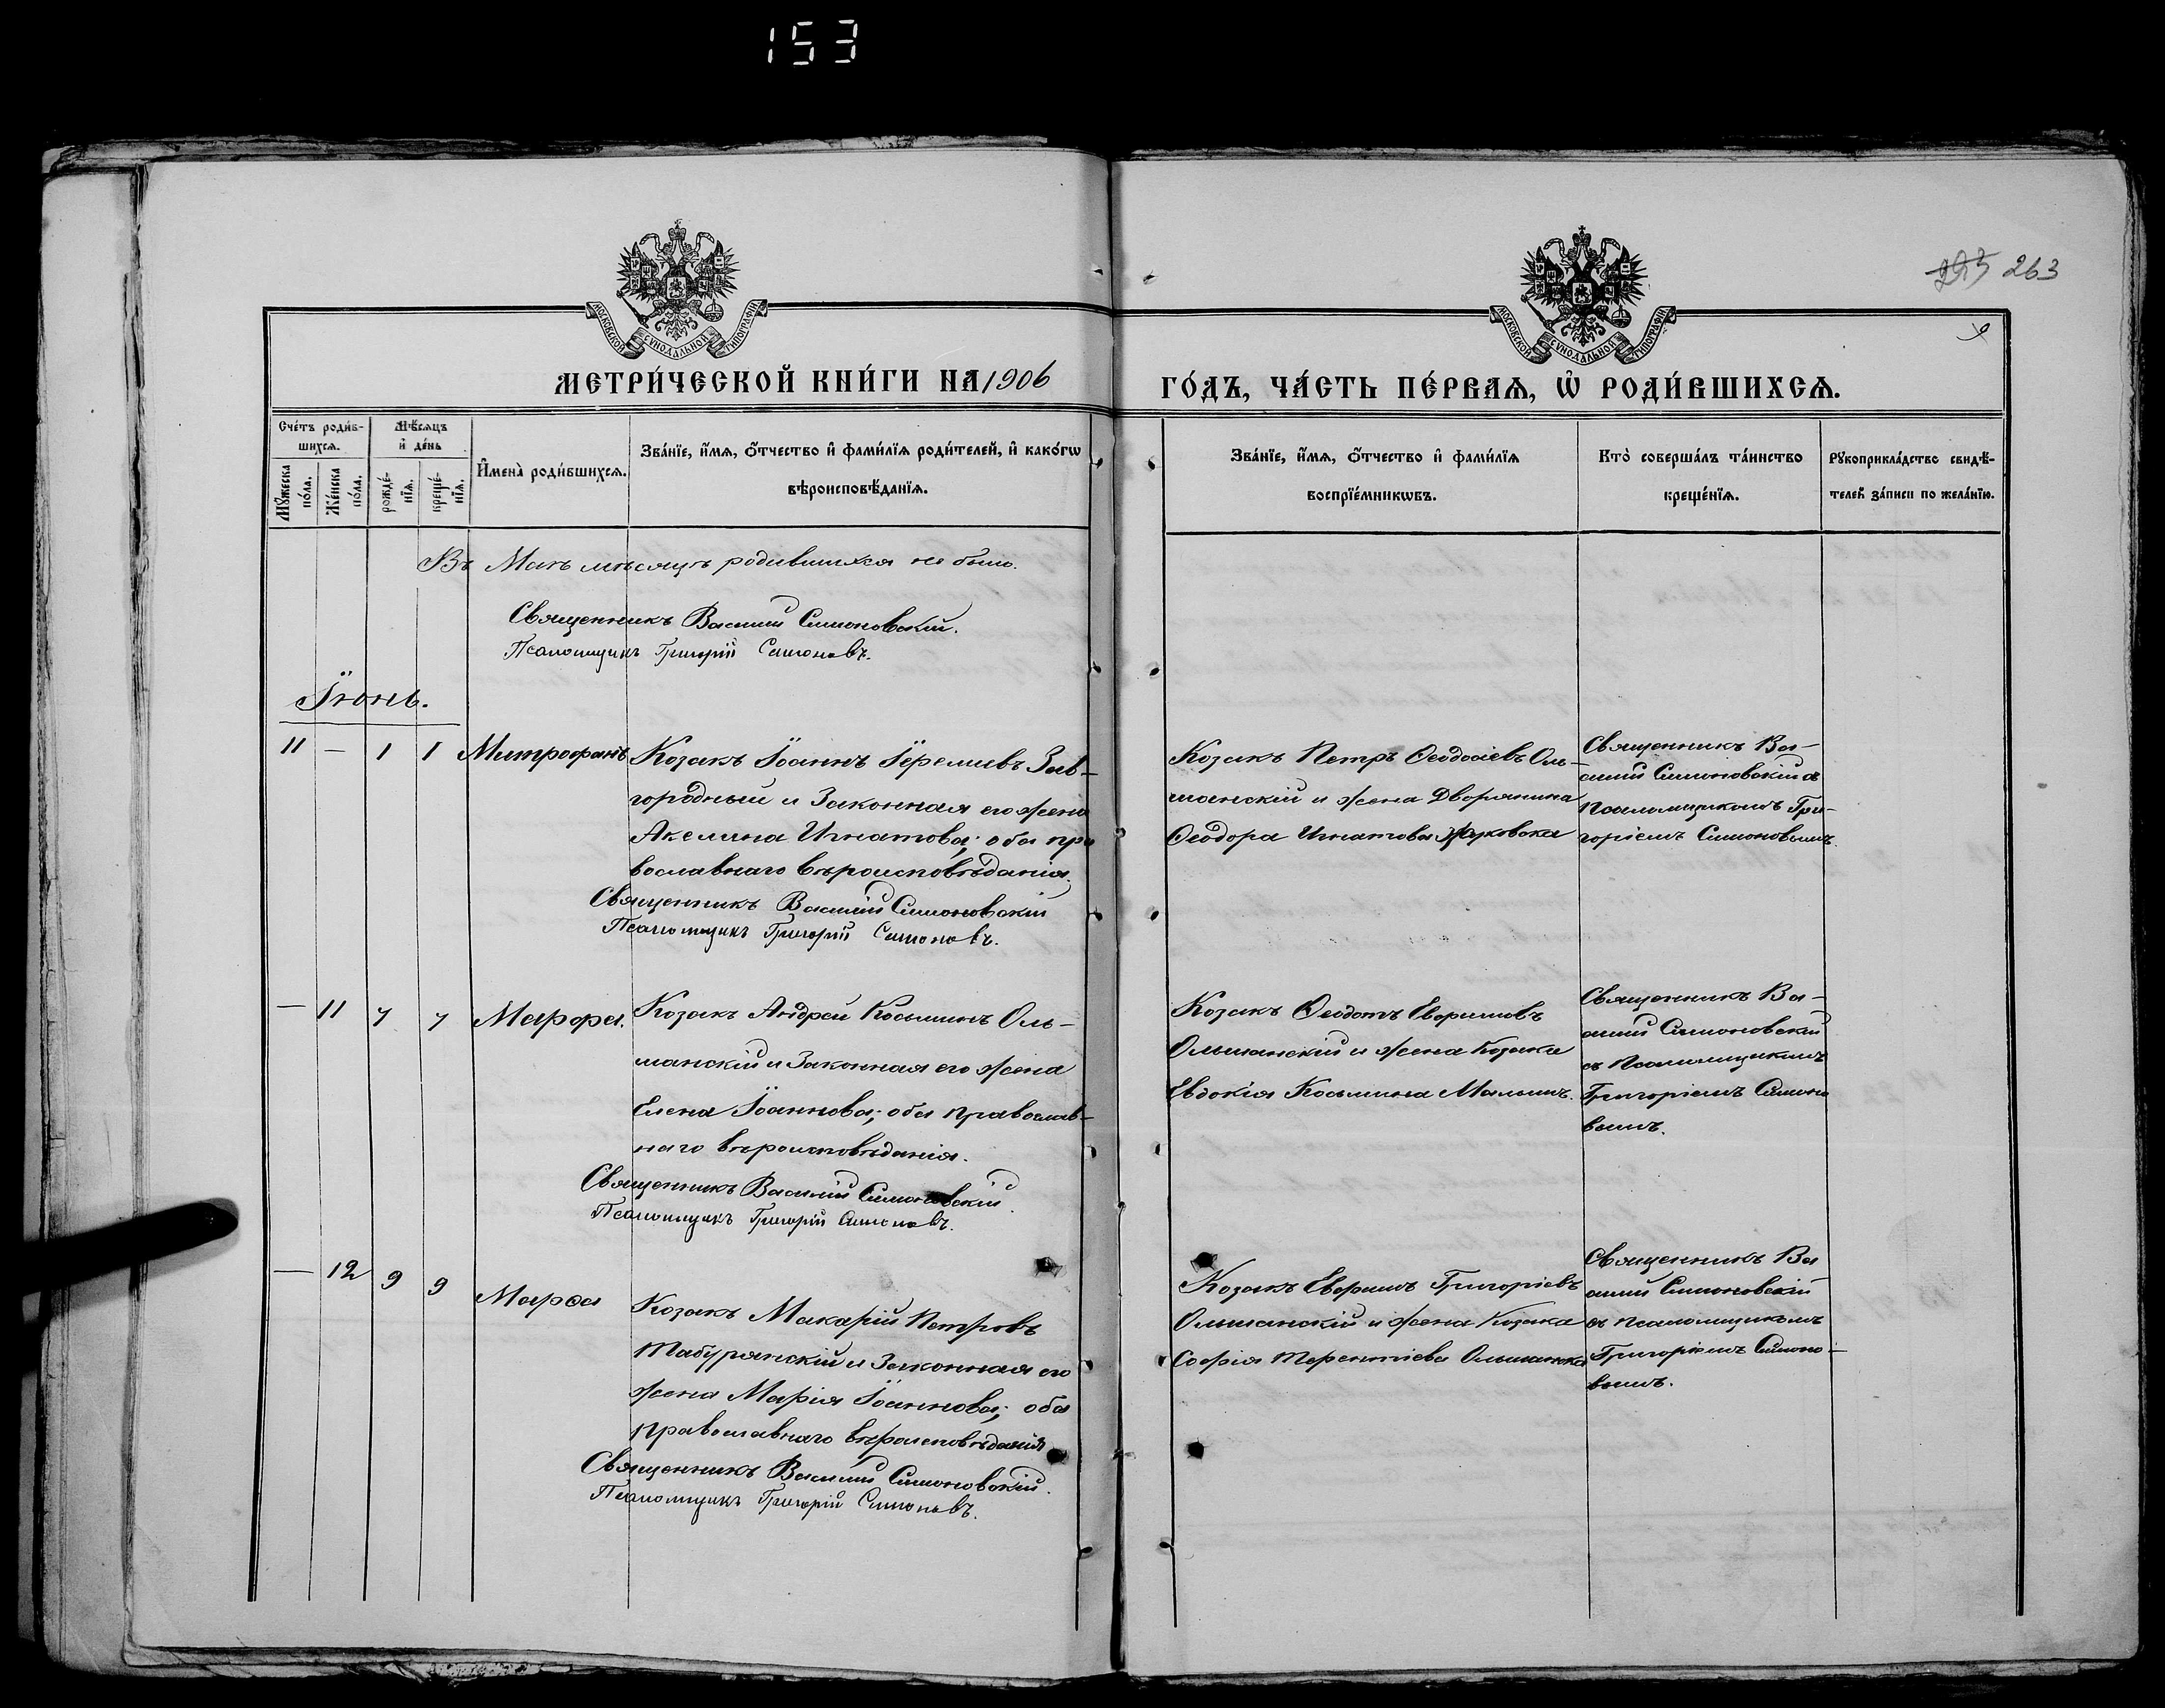 153
293 263
9
МОСКОВСКОЙ СѴНОДАЛЬНОЙ ТИПОГРАФІИ
МОСКОВСКОЙ СѴНОДАЛЬНОЙ ТИПОГРАФІИ
МЕТРИ́ЧЕСКОЙ КНИ́ГИ НА 1906
ГО́ДЪ, ЧА́СТЬ ПЕ́РВАѦ, Ѡ҆ РОДИ́ВШИХСѦ.
Сче́тъ роди́в-
шихсѧ.
Мꙋ́жеска по́ла.
Же́нска по́ла.
Мѣ́сѧцъ
и҆ де́нь
рожде́-
нїѧ.
креще́-
нїѧ.
И҆мена̀ роди́вшихсѧ.
Зва́нїе, и҆́мѧ, ѻ҆́тчество и҆ фами́лїѧ роди́телей, и҆ како́гѡ
вѣроисповѣ́данїѧ.
Зва́нїе, и҆́мѧ, ѻ҆́тчество и҆ фами́лїѧ
воспрїе́мникѡвъ.
Кто̀ соверша́лъ та́инство
креще́нїѧ.
Рꙋкоприкла́дство свидѣ́-
телей за́писи по жела́нїю.
Въ Маѣ мѣсяцѣ родившихся не было.
Священникъ Василій Симоновскій.
Псаломщикъ Григорій Симоновъ.
Їюнь.
11 — 1 1 Митрофанъ
Козакъ Їоаннъ Їеремиевъ Зав-
городный и Законная его жена
Акелина Игнатова; оба пра
вославнаго вѣроисповѣданія.
Священникъ Василій Симоновскій
Псаломщикъ Григорій Симоновъ.
Козакъ Петръ Ѳеодосіевъ Оль-
шанскій и жена Дворянина
Ѳеодора Игнатова Жуковска
Священникъ Ва-
силій Симоновскій съ
Псаломщикомъ Гри-
горіемъ Симоновымъ.
— 11 7 7 Марфа.
Козакъ Андрей Косьминъ Оль-
шанскій и Законная его жена
Елена Їоаннова; оба Православ-
наго вѣроисповѣданія.
Священникъ Василій Симоновскій.
Псаломщикъ Григорій Симоновъ.
Козакъ Ѳеодотъ Евфимовъ
Ольшанскій и жена Козака
Евдокія Косьмина Малышъ.
Священникъ Ва-
силій Симоновскій
съ Псаломщикомъ
Григоріемъ Симоно
вымъ.
— 12 9 9 Марѳа
Козакъ Макарій Петровъ
Табурянскій и Законная его
жена Марія Їоаннова; оба
Православнаго вѣроисповѣданія
Священникъ Василій Симоновскій.
Псаломщикъ Григорій Симоновъ.
Козакъ Евфимъ Григоріевъ
Ольшанскій и жена Козака
Софія Терентіева Ольшанска
Священникъ Ва
силій Симоновскій
съ Псаломщикомъ
Григоріемъ Симоно-
вымъ.